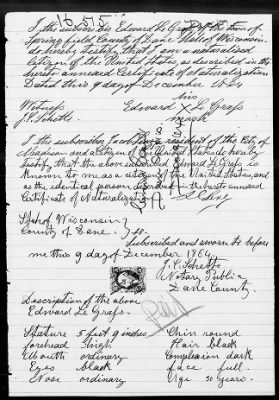 16,515
I the subscriber Edward Le Grafs of the town of
Springfield County of Dane State of Wisconsin,
do hereby Certify that I am a naturalized
Citizen of the United States, as described in the
hereto annexed Certificate of Naturalization
Dated this 9 day of December 1864
his
Witness Edward X Le Grafs
mark
I the subscriber Jacob resident of the City of
Madison and a Citizen of the United States do hereby
Certify that the above subscriber Edward Le Grafs is
known to me as a citizen of the United States, and
as the identical person described in the hereto annexed
Certificate of Naturalization
State of Wisconsin }
County of Dane. } SS.
Subscribed and sworn to before
me this 9 day of December 1864.
Notary Public
Dane County
Paid
Description of the above
Edward Le Grafs.
Stature 5 feet 9 inches Chin round
forehead high Hair black
Mouth ordinary Complexion dark
Eyes black face full.
Nose ordinary Age 30 years.